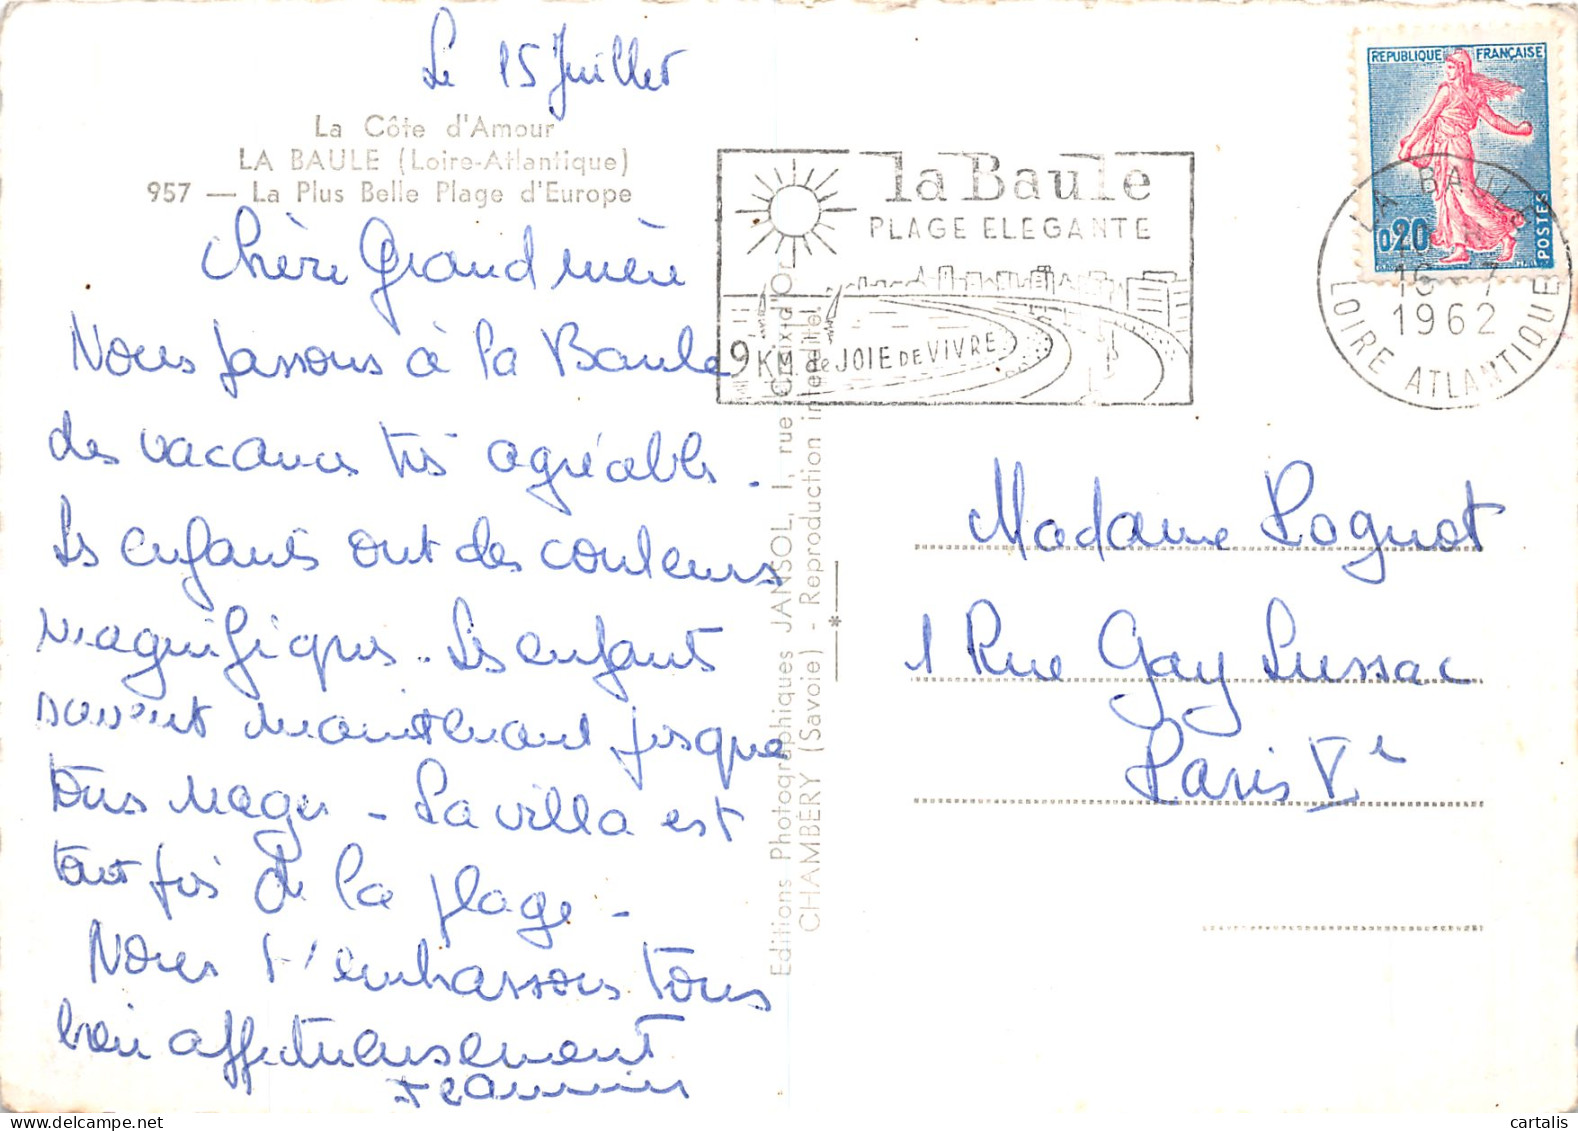 Le 15 Juillet
La Côte d'Amour
LA BAULE (Loire-Atlantique)
957 — La Plus Belle Plage d'Europe
Chère Grand mère
Nous passons à la Baule
des vacances très agréables.
Les enfants ont des couleurs
magnifiques. Les enfants
savent maintenant presque
tous nager - La villa est
tout près de la plage -
Nous t'embrassons tous
bien affectueusement
REPUBLIQUE FRANÇAISE
0,20
POSTES
la Baule
PLAGE ELEGANTE
9 KM de JOIE DE VIVRE
LA BAULE
16 - 7
1962
LOIRE ATLANTIQUE
Editions Photographiques JANSOL, 1, rue Croix d'Or
CHAMBÉRY (Savoie) - Reproduction interdite.
Madame Poguot
1 Rue Gay Lussac
Paris Ve
cartalis